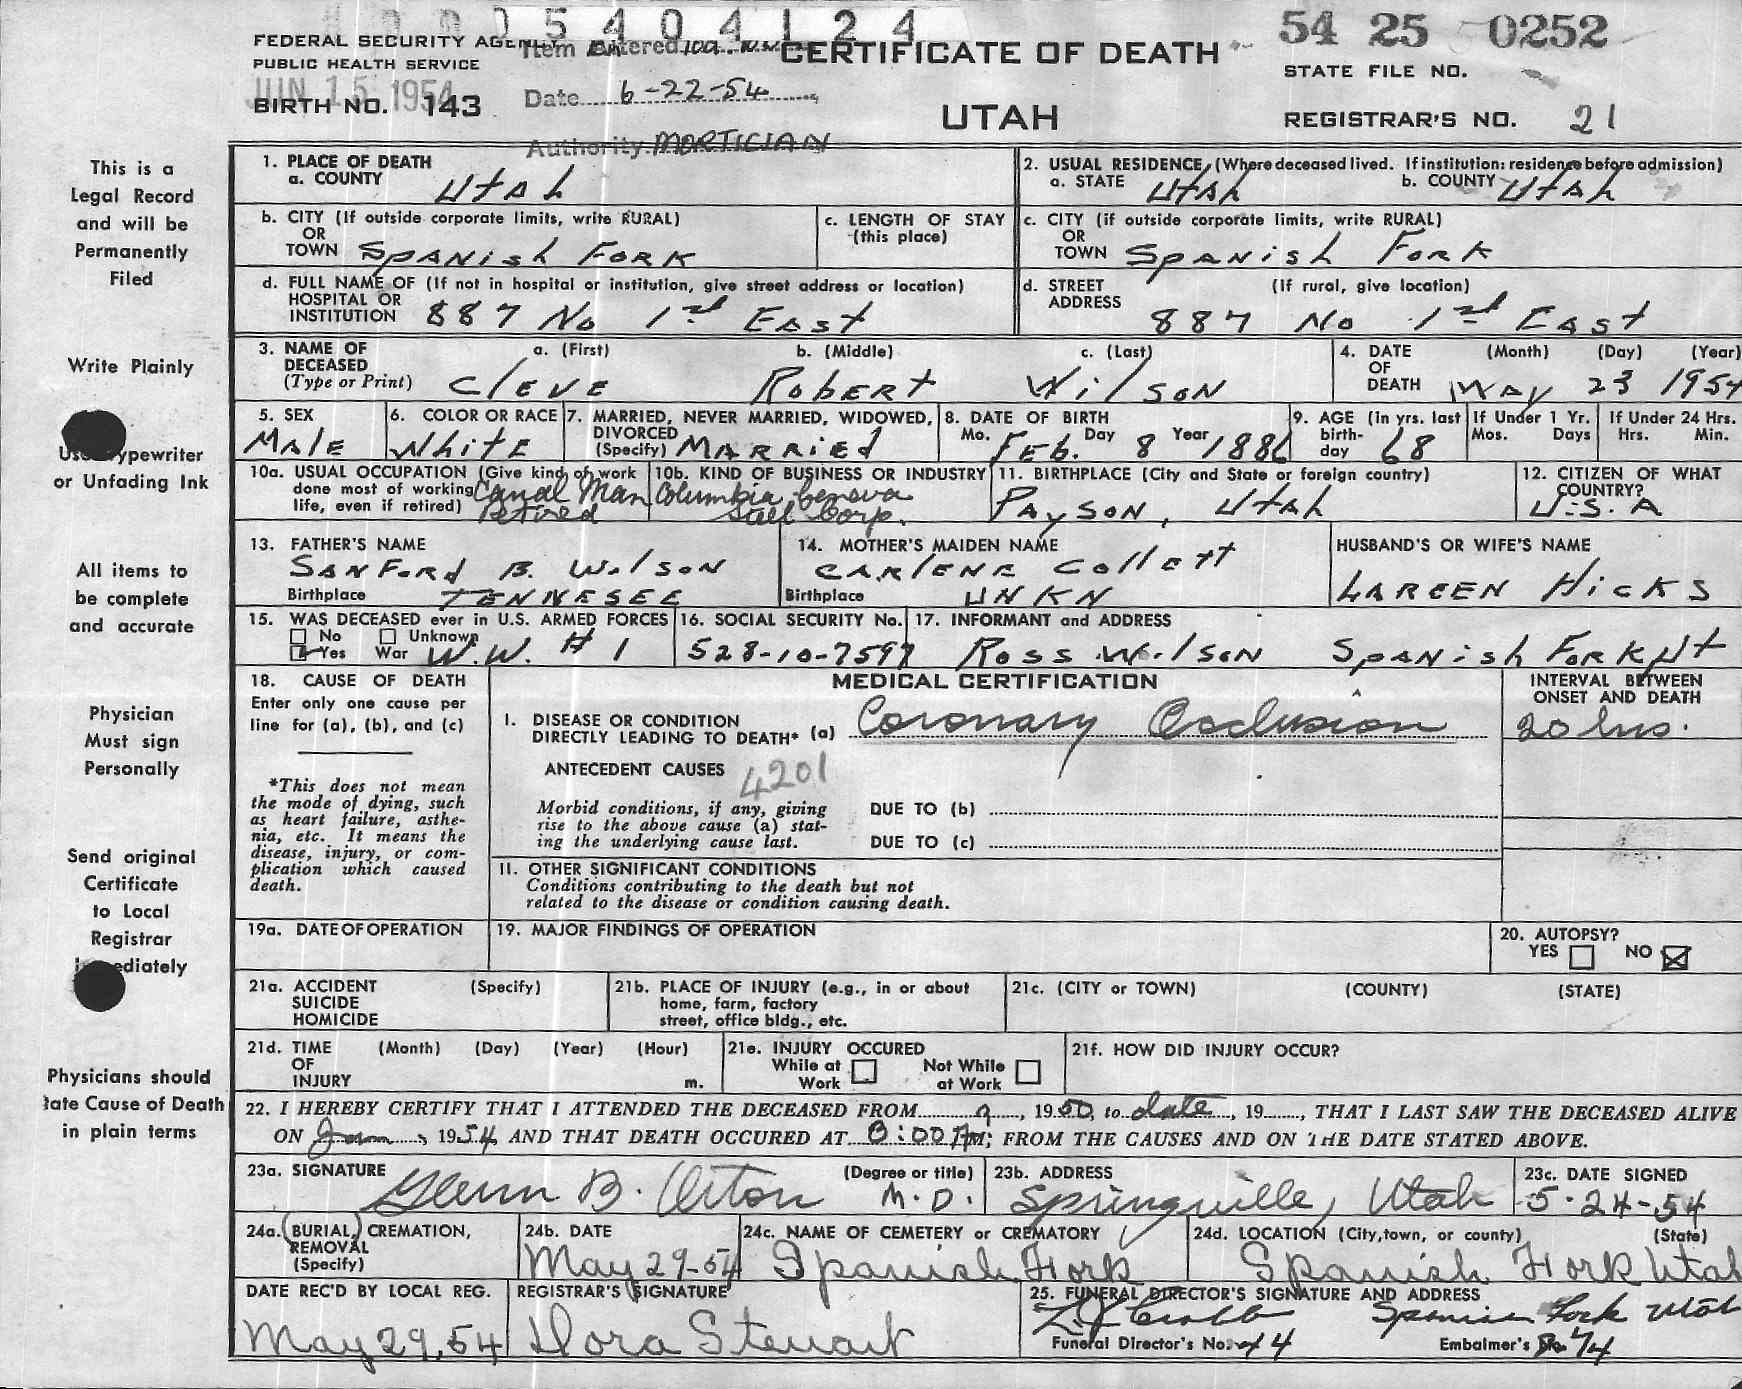 0005404124
54 25 0252
FEDERAL SECURITY AGENCY
Item Entered 10a.
CERTIFICATE OF DEATH
PUBLIC HEALTH SERVICE
STATE FILE NO.
JUN 15 1954
BIRTH NO. 143
Date 6-22-54
UTAH
REGISTRAR'S NO. 21
Authority MORTICIAN
This is a
Legal Record
and will be
Permanently
Filed
Write Plainly
Use Typewriter
or Unfading Ink
All items to
be complete
and accurate
Physician
Must sign
Personally
Send original
Certificate
to Local
Registrar
immediately
Physicians should
state Cause of Death
in plain terms
1. PLACE OF DEATH
a. COUNTY Utah
2. USUAL RESIDENCE (Where deceased lived. If institution: residence before admission)
a. STATE Utah b. COUNTY Utah
b. CITY (If outside corporate limits, write RURAL)
OR
TOWN Spanish Fork
c. LENGTH OF STAY
(this place)
c. CITY (if outside corporate limits, write RURAL)
OR
TOWN Spanish Fork
d. FULL NAME OF (If not in hospital or institution, give street address or location)
HOSPITAL OR
INSTITUTION 887 No 1st East
d. STREET (If rural, give location)
ADDRESS 887 No 1st East
3. NAME OF DECEASED
(Type or Print)
a. (First) b. (Middle) c. (Last)
Cleve Robert Wilson
4. DATE OF DEATH (Month) (Day) (Year)
May 23 1954
5. SEX
Male
6. COLOR OR RACE
White
7. MARRIED, NEVER MARRIED, WIDOWED,
DIVORCED
(Specify) Married
8. DATE OF BIRTH
Mo. Feb. Day 8 Year 1886
9. AGE (in yrs. last
birth-
day 68
If Under 1 Yr.
Mos. Days
If Under 24 Hrs.
Hrs. Min.
10a. USUAL OCCUPATION (Give kind of work
done most of working
life, even if retired)
Canal Man
Retired
10b. KIND OF BUSINESS OR INDUSTRY
Columbia Geneva
Steel Corp.
11. BIRTHPLACE (City and State or foreign country)
Payson, Utah
12. CITIZEN OF WHAT
COUNTRY?
U.S.A
13. FATHER'S NAME
Sanford B. Wilson
Birthplace Tennesee
14. MOTHER'S MAIDEN NAME
Carlene Collett
Birthplace Unkn
HUSBAND'S OR WIFE'S NAME
Lareen Hicks
15. WAS DECEASED ever in U.S. ARMED FORCES
No Unknown
Yes War W.W. # 1
16. SOCIAL SECURITY No.
528-10-7597
17. INFORMANT and ADDRESS
Ross Wilson Spanish Fork Ut
18. CAUSE OF DEATH
Enter only one cause per
line for (a), (b), and (c)
*This does not mean
the mode of dying, such
as heart failure, asthe-
nia, etc. It means the
disease, injury, or com-
plication which caused
death.
MEDICAL CERTIFICATION
INTERVAL BETWEEN
ONSET AND DEATH
I. DISEASE OR CONDITION
DIRECTLY LEADING TO DEATH* (a) Coronary Occlusion
20 hrs.
ANTECEDENT CAUSES
4201
Morbid conditions, if any, giving
rise to the above cause (a) stat-
ing the underlying cause last.
DUE TO (b)
DUE TO (c)
II. OTHER SIGNIFICANT CONDITIONS
Conditions contributing to the death but not
related to the disease or condition causing death.
19a. DATE OF OPERATION
19. MAJOR FINDINGS OF OPERATION
20. AUTOPSY?
YES NO
21a. ACCIDENT (Specify)
SUICIDE
HOMICIDE
21b. PLACE OF INJURY (e.g., in or about
home, farm, factory
street, office bldg., etc.
21c. (CITY or TOWN) (COUNTY) (STATE)
21d. TIME (Month) (Day) (Year) (Hour)
OF
INJURY m.
21e. INJURY OCCURED
While at Work
Not While at Work
21f. HOW DID INJURY OCCUR?
22. I HEREBY CERTIFY THAT I ATTENDED THE DECEASED FROM ?, 1950, to date, 19, THAT I LAST SAW THE DECEASED ALIVE
ON Jan, 1954, AND THAT DEATH OCCURED AT 8:00 AM; FROM THE CAUSES AND ON THE DATE STATED ABOVE.
23a. SIGNATURE (Degree or title)
Glenn B. Orton M.D.
23b. ADDRESS
Springville, Utah
23c. DATE SIGNED
5-24-54
24a. BURIAL, CREMATION,
REMOVAL
(Specify)
24b. DATE
May 29-54
24c. NAME OF CEMETERY or CREMATORY
Spanish Fork
24d. LOCATION (City, town, or county) (State)
Spanish Fork Utah
DATE REC'D BY LOCAL REG.
May 29, 54
REGISTRAR'S SIGNATURE
Dora Stewart
25. FUNERAL DIRECTOR'S SIGNATURE AND ADDRESS
Spanish Fork Utah
Funeral Director's No. 44
Embalmer's No. 74